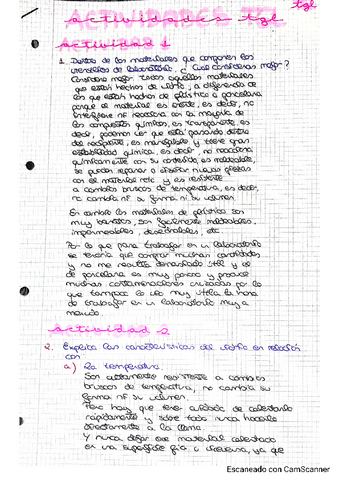 tgl
actividades tgl
actividad 1
1. Dentro de los materiales que componen los
utensilios de laboratorio, ¿Cual consideras mejor?
Considero mejor todos aquellos materiales
que están hechos de vidrio, a diferencia de
los que están hechos de plástico o porcelana
porque el material es inerte, es decir, no
interfiere ni reacciona con la mayoría de
los compuestos químicos, es transparente, es
decir, podemos ver que está pasando dentro
del recipiente, es manejable y tiene gran
estabilidad química, es decir, no reacciona
químicamente con su contenido, es moldeable,
se pueden reparar o diseñar nuevas piezas
con el material roto y es resistente
a cambios bruscos de temperatura, es decir,
no cambia ni su forma ni su volumen.
En cambio los materiales de plástico son
muy baratos, son facilmente moldeables,
impermeables, desechables, etc
Por lo que para trabajar en un laboratorio
se tendría que comprar muchas cantidades
y no me resulta demasiado útil y el
de porcelana es muy poroso y produce
muchas contaminaciones cruzadas por lo
que tampoco lo veo muy útil a la hora
de trabajar en un laboratorio muy a
menudo.
actividad 2
2. Explica las características del vidrio en relación
con
a) La temperatura.
Son altamente resistente a cambios
bruscos de temperatura, no cambia su
forma ni su volumen.
Pero hay que tener cuidado de calentarlo
rápidamente y sobre todo nunca hacerlo
directamente a la llama.
Y nunca dejar ese material calentado
en una superficie fría o , ya que
Escaneado con CamScanner